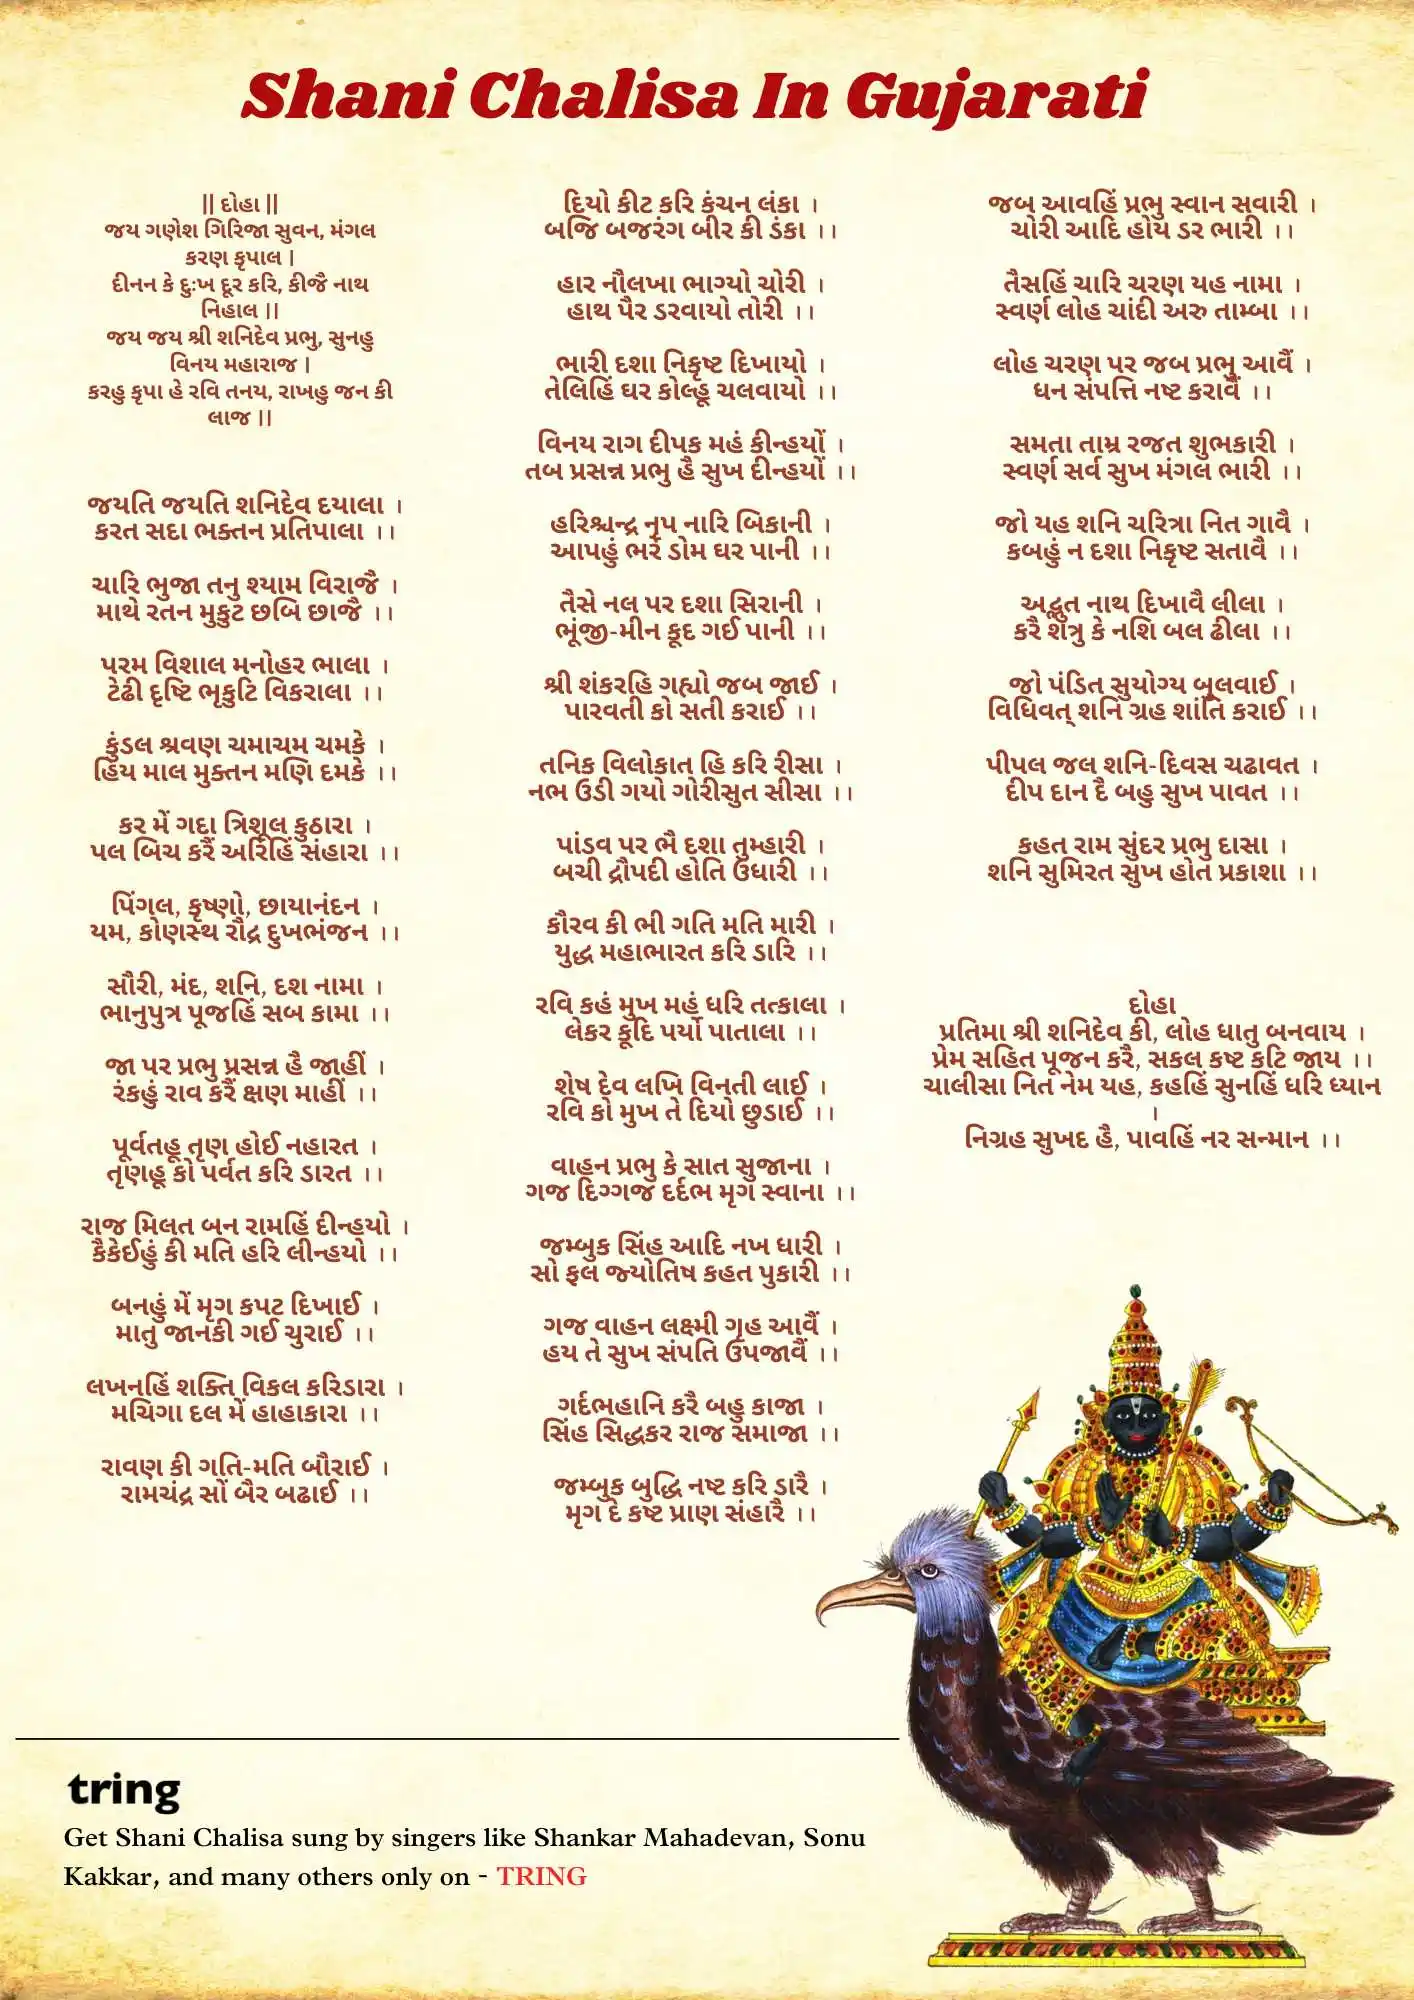 Shani Chalisa In Gujarati
|| દોહા ||
જય ગણેશ ગિરિજા સુવન, મંગલ
કરણ કૃપાલ |
દીનન કે દુઃખ દૂર કરિ, કીજૈ નાથ
નિહાલ ||
જય જય શ્રી શનિદેવ પ્રભુ, સુનહુ
વિનય મહારાજ |
કરહુ કૃપા હે રવિ તનય, રાખહુ જન કી
લાજ ||
જયતિ જયતિ શનિદેવ દયાલા ।
કરત સદા ભક્તન પ્રતિપાલા ।।
ચારિ ભુજા તનુ શ્યામ વિરાજૈ ।
માથે રતન મુકુટ છબિ છાજૈ ।।
પરમ વિશાલ મનોહર ભાલા ।
ટેઢી દૃષ્ટિ ભૃકુટિ વિકરાલા ।।
કુંડલ શ્રવણ ચમાચમ ચમકે ।
હિય માલ મુક્તન મણિ દમકે ।।
કર મેં ગદા ત્રિશૂલ કુઠારા ।
પલ બિચ કરૈં અરિહિં સંહારા ।।
પિંગલ, કૃષ્ણો, છાયાનંદન ।
યમ, કોણસ્થ રૌદ્ર દુખભંજન ।।
સૌરી, મંદ, શનિ, દશ નામા ।
ભાનુપુત્ર પૂજહિં સબ કામા ।।
જા પર પ્રભુ પ્રસન્ન હૈ જાહીં ।
રંકહું રાવ કરૈં ક્ષણ માહીં ।।
પૂર્વતહૂ તૃણ હોઈ નહારત ।
તૃણહૂ કો પર્વત કરિ ડારત ।।
રાજ મિલત બન રામહિં દીન્હયો ।
કૈકેઈહું કી મતિ હરિ લીન્હયો ।।
બનહું મેં મૃગ કપટ દિખાઈ ।
માતુ જાનકી ગઈ ચુરાઈ ।।
લખનહિં શક્તિ વિકલ કરિડારા ।
મચિગા દલ મેં હાહાકારા ।।
રાવણ કી ગતિ-મતિ બૌરાઈ ।
રામચંદ્ર સોં બૈર બઢાઈ ।।
દિયો કીટ કરિ કંચન લંકા ।
બજિ બજરંગ બીર કી ડંકા ।।
હાર નૌલખા ભાગ્યો ચોરી ।
હાથ પૈર ડરવાયો તોરી ।।
ભારી દશા નિકૃષ્ટ દિખાયો ।
તેલિહિં ઘર કોલ્હૂ ચલવાયો ।।
વિનય રાગ દીપક મહં કીન્હયોં ।
તબ પ્રસન્ન પ્રભુ હૈ સુખ દીન્હયોં ।।
હરિશ્ચન્દ્ર નૃપ નારિ બિકાની ।
આપહું ભરેં ડોમ ઘર પાની ।।
તૈસે નલ પર દશા સિરાની ।
ભૂંજી-મીન કૂદ ગઈ પાની ।।
શ્રી શંકરહિ ગહ્યો જબ જાઈ ।
પારવતી કો સતી કરાઈ ।।
તનિક વિલોકાત હિ કરિ રીસા ।
નભ ઉડી ગયો ગોરીસુત સીસા ।।
પાંડવ પર ભૈ દશા તુમ્હારી ।
બચી દ્રૌપદી હોતિ ઉધારી ।।
કૌરવ કી ભી ગતિ મતિ મારી ।
યુદ્ધ મહાભારત કરિ ડારિ ।।
રવિ કહં મુખ મહં ધરિ તત્કાલા ।
લેકર કૂદિ પર્યો પાતાલા ।।
શેષ દેવ લખિ વિનતી લાઈ ।
રવિ કો મુખ તે દિયો છુડાઈ ।।
વાહન પ્રભુ કે સાત સુજાના ।
ગજ દિગ્ગજ દર્દભ મૃગ સ્વાના ।।
જમ્બુક સિંહ આદિ નખ ધારી ।
સો ફલ જ્યોતિષ કહત પુકારી ।।
ગજ વાહન લક્ષ્મી ગૃહ આવૈં ।
હય તે સુખ સંપતિ ઉપજાવૈં ।।
ગર્દભહાનિ કરૈ બહુ કાજા ।
સિંહ સિદ્ધકર રાજ સમાજા ।।
જમ્બુક બુદ્ધિ નષ્ટ કરિ ડારૈ ।
મૃગ દે કષ્ટ પ્રાણ સંહારૈ ।।
જબ આવહિં પ્રભુ સ્વાન સવારી ।
ચોરી આદિ હોય ડર ભારી ।।
તૈસહિં ચારિ ચરણ યહ નામા ।
સ્વર્ણ લોહ ચાંદી અરુ તામ્બા ।।
લોહ ચરણ પર જબ પ્રભુ આવૈં ।
ધન સંપત્તિ નષ્ટ કરાવૈં ।।
સમતા તામ્ર રજત શુભકારી ।
સ્વર્ણ સર્વ સુખ મંગલ ભારી ।।
જો યહ શનિ ચરિત્રા નિત ગાવૈ ।
કબહું ન દશા નિકૃષ્ટ સતાવૈ ।।
અદ્ભુત નાથ દિખાવૈ લીલા ।
કરૈ શત્રુ કે નશિ બલ ઢીલા ।।
જો પંડિત સુયોગ્ય બુલવાઈ ।
વિધિવત્ શનિ ગ્રહ શાંતિ કરાઈ ।।
પીપલ જલ શનિ-દિવસ ચઢાવત ।
દીપ દાન દૈ બહુ સુખ પાવત ।।
કહત રામ સુંદર પ્રભુ દાસા ।
શનિ સુમિરત સુખ હોત પ્રકાશા ।।
દોહા
પ્રતિમા શ્રી શનિદેવ કી, લોહ ધાતુ બનવાય ।
પ્રેમ સહિત પૂજન કરૈ, સકલ કષ્ટ કટિ જાય ।।
ચાલીસા નિત નેમ યહ, કહહિં સુનહિં ધરિ ધ્યાન
।
નિગ્રહ સુખદ હૈ, પાવહિં નર સન્માન ।।
tring
Get Shani Chalisa sung by singers like Shankar Mahadevan, Sonu
Kakkar, and many others only on - TRING